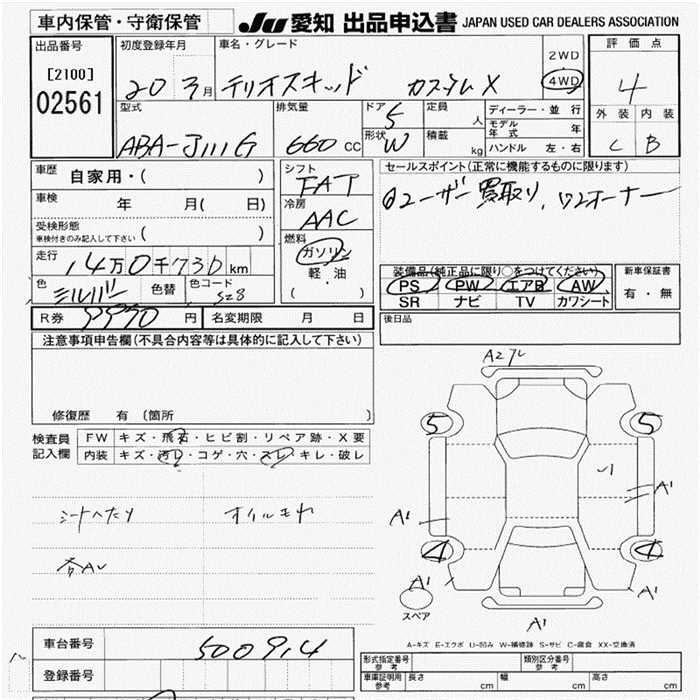 車内保管・守衛保管 JU 愛知 出品申込書 JAPAN USED CAR DEALERS ASSOCIATION
出品番号
[2100]
02561
初度登録年月
20 3月
車名・グレード
テリオスキッド カスタムX
2WD
4WD
評価点
4
外装 内装
C B
型式
ABA-J111G
排気量
660 CC
ドア
5
形状
W
定員
人
積載
kg
ディーラー・並行
モデル年式 年
ハンドル 左・右
車歴
自家用・( )
車検 年 月( 日)
受検形態
車検付きのみ記入して下さい ( )
走行
14万0千730km
色
シルバー
色替
色コード
S28
シフト
FAT
冷房
AAC
燃料
ガソリン
軽・油
( )
セールスポイント(正常に機能するものに限ります)
ユーザー買取り、ワンオーナー
装備品(純正品に限り○をつけてください)
PS PW エアB AW
SR ナビ TV カワシート
新車保証書
有・無
R券 9970 円
名変期限 月 日
後日品
注意事項申告欄(不具合内容等は具体的に記入して下さい)
修復歴 有 (箇所 )
検査員記入欄
FW キズ・飛石・ヒビ割・リペア跡・X要
内装 キズ・汚レ・コゲ・穴・スレ・キレ・破レ
シートヘタリ オイルモヤ
A2 
5 5
A1
A1
4 4
A1 A1
スペア
A1
A-キズ E-エクボ U-凹み W-補修跡 S-サビ C-腐食 XX-交換済
車台番号
500914
登録番号
形式指定番号 参考
類別区分番号 参考
車庫証明用 参考 長さ cm 幅 cm 高さ cm